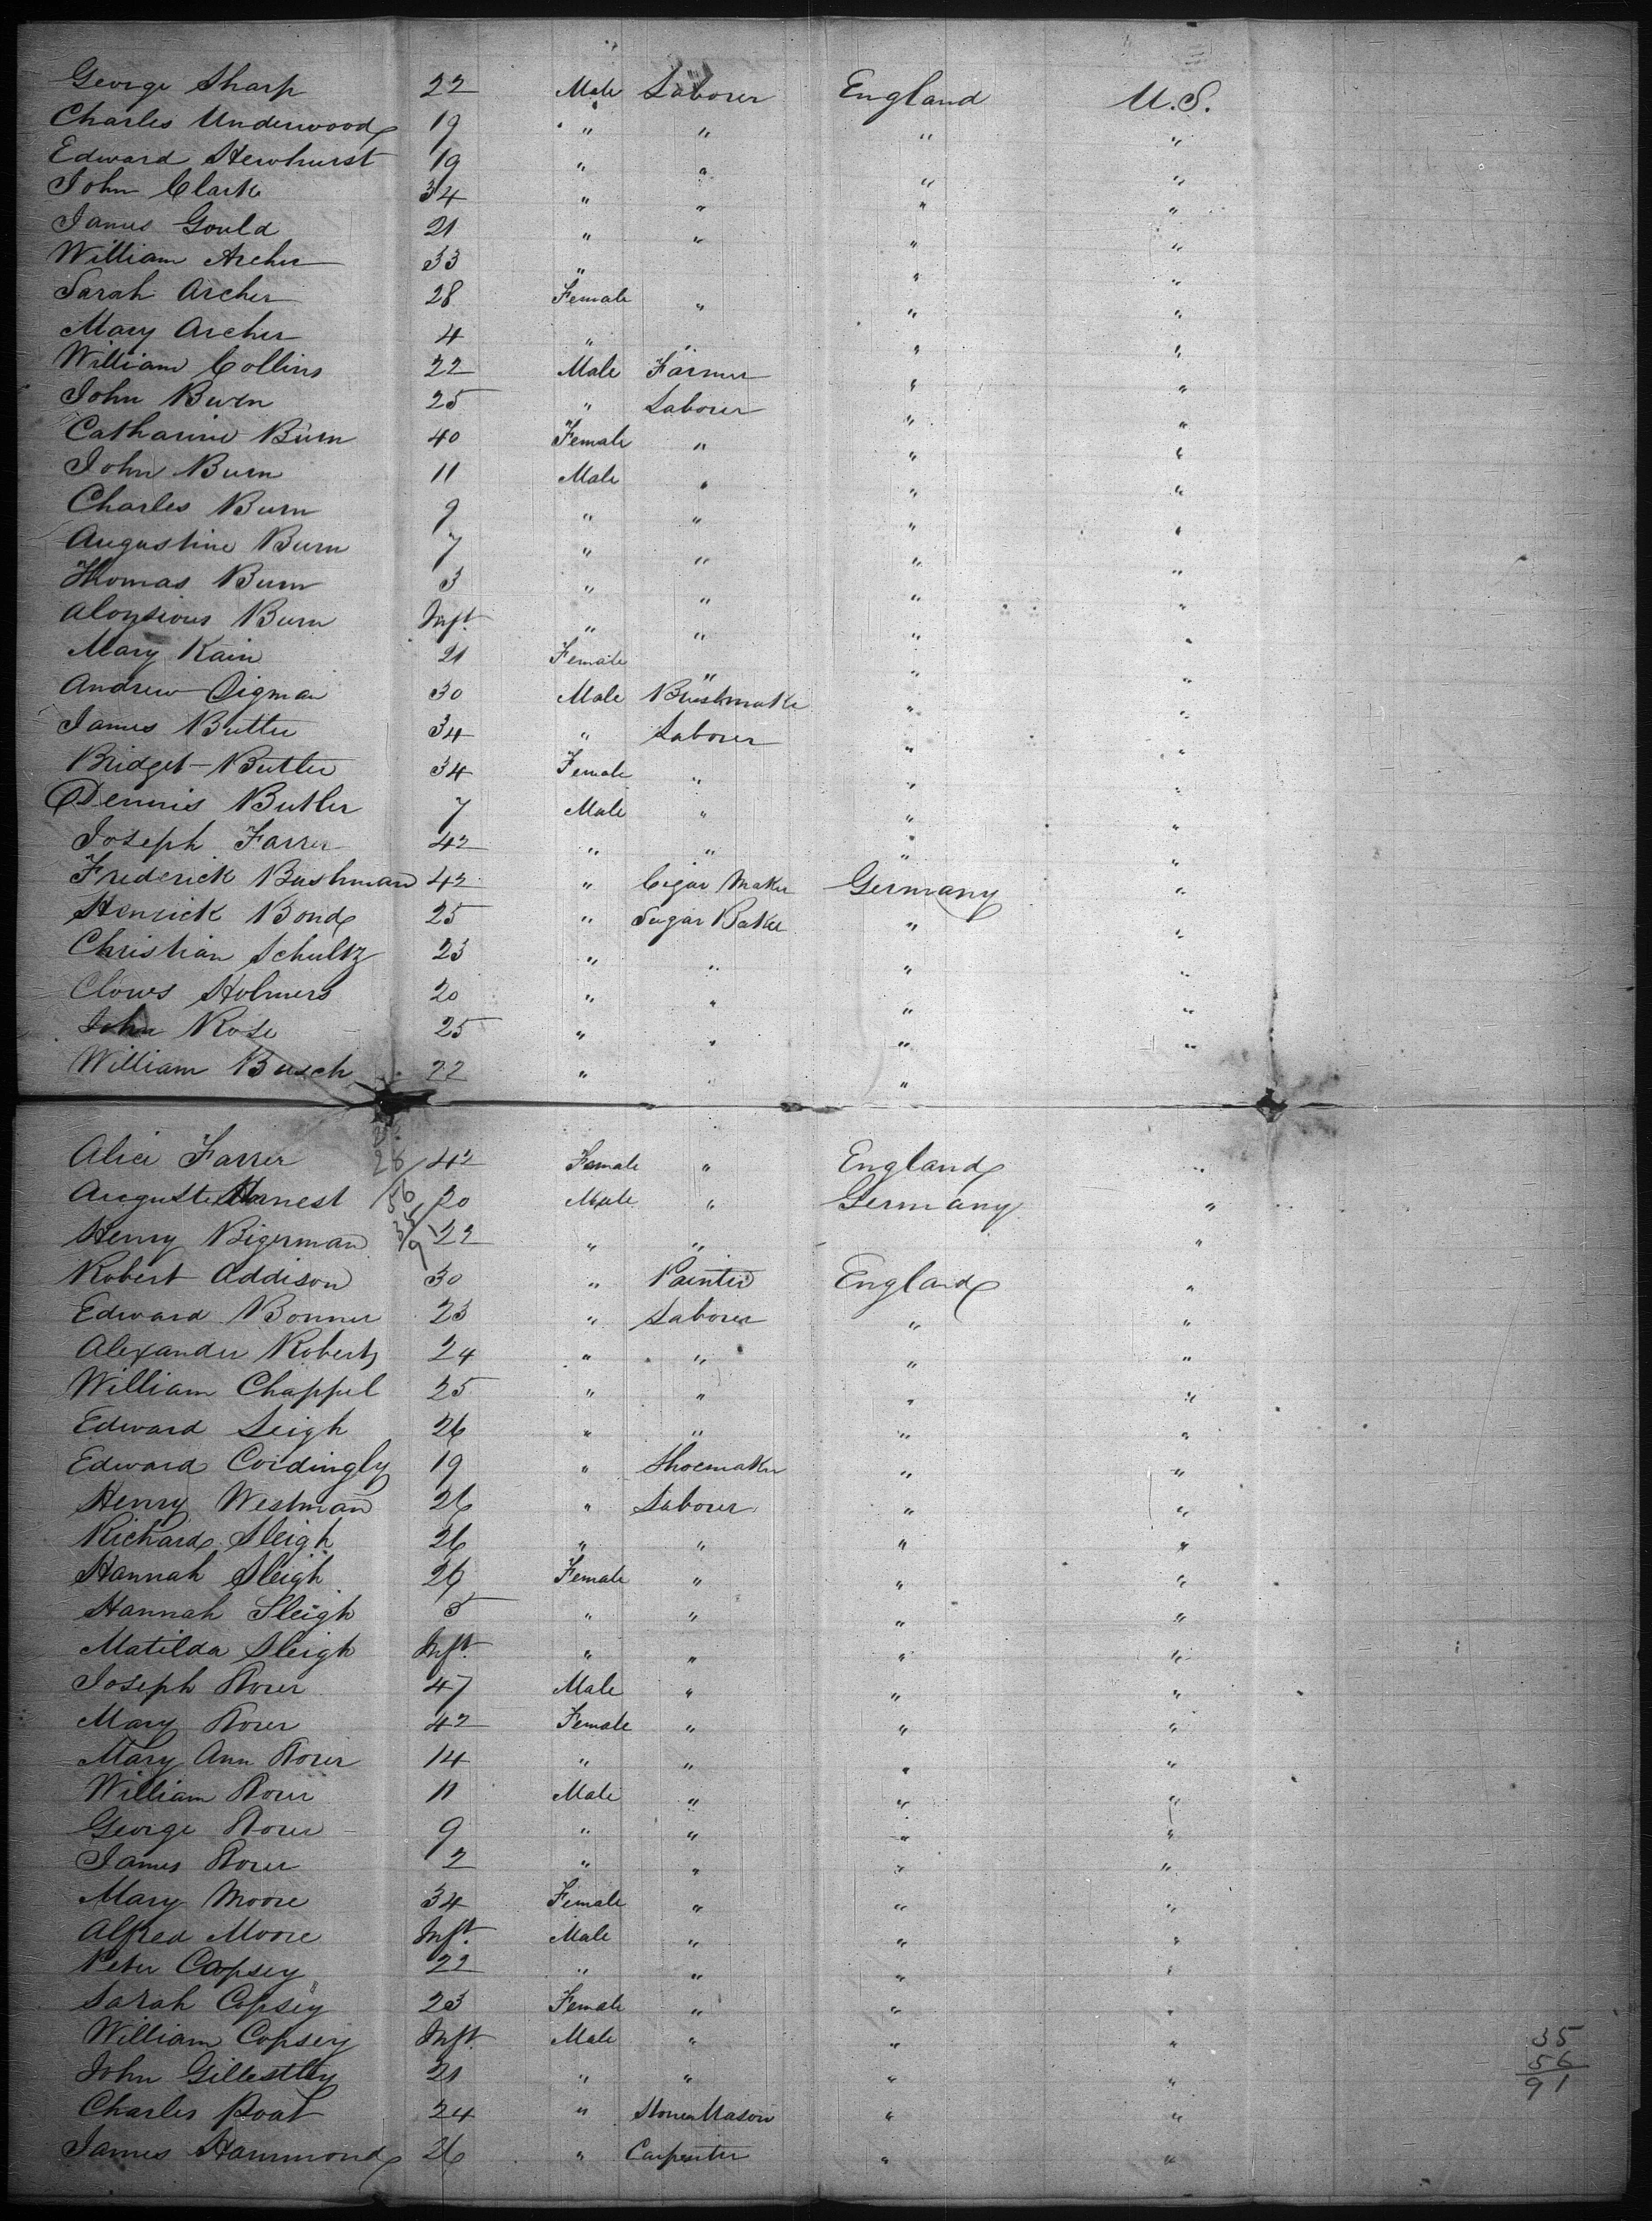 George Sharp 22 Male Laborer England U.S.
Charles Underwood 19 " " " "
Edward Hewhurst 19 " " " "
John Clark 34 " " " "
James Gould 21 " " " "
William Archer 33 " " "
Sarah Archer 28 Female " " "
Mary Archer 4 " " " "
William Collins 22 Male Farmer " "
John Burn 25 " Laborer " "
Catharine Burn 40 Female " " "
John Burn 11 Male " " "
Charles Burn 9 " " " "
Augustine Burn 7 " " " "
Thomas Burn 3 " " " "
Aloysious Burn Inft. " " " "
Mary Kain 21 Female " " "
Andrew Digman 30 Male Brushmaker " "
James Butler 34 " Laborer " "
Bridget Butler 34 Female " " "
Dennis Butler 7 Male " " "
Joseph Farrer 42 " " " "
Frederick Bushman 42 " Cigar Maker Germany "
Henrick Bond 25 " Sugar Baker " "
Christian Schultz 23 " " " "
Clows Holmers 20 " " " "
John Rose 25 " " " "
William Busch 22 " " "
28
Alice Farrer 28 42 Female " England "
August Ernest 56 20 Male " Germany "
Henry Bigerman 35 9 22 " " "
Robert Addison 30 " Painter England "
Edward Bonner 23 " Laborer " "
Alexander Roberts 24 " " " "
William Chappel 25 " " " "
Edward Leigh 26 " " " "
Edward Cordingly 19 " Shoemaker " "
Henry Westman 26 " Laborer " "
Richard Sleigh 26 " " " "
Hannah Sleigh 26 Female " " "
Hannah Sleigh 5 " " " "
Matilda Sleigh Inft. " " " "
Joseph Rorer 47 Male " " "
Mary Rorer 42 Female " " "
Mary Ann Rorer 14 " " " "
William Rorer 11 Male " " "
George Rorer 9 " " " "
James Rorer 2 " " " "
Mary Moore 34 Female " " "
Alfred Moore Inft. Male " " "
Peter Copsey 22 " " " "
Sarah Copsey 23 Female " " "
William Copsey Inft. Male " " " 35
John Gillestley 21 " " " " 56
Charles Poat 24 " Stone Mason " " 91
James Hammond 26 " Carpenter " "